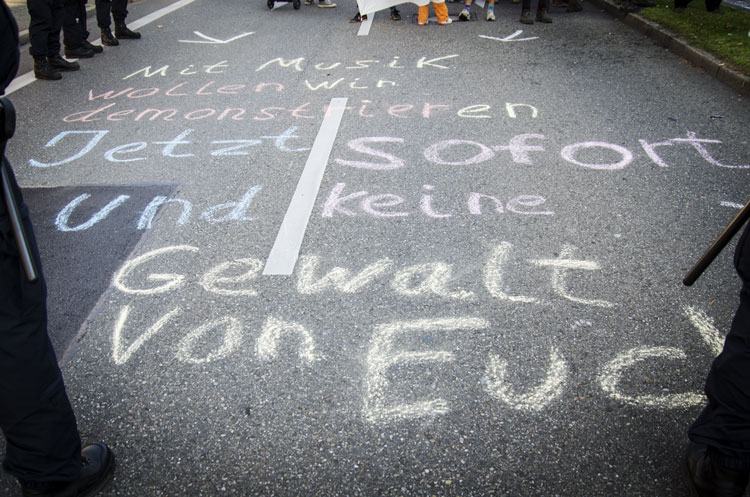 Mit Musik
wollen Wir
demonstrieren
Jetzt sofort
und keine
Gewalt
Von Euch